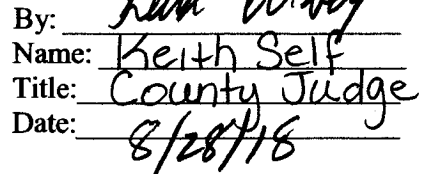 By:
Name: Keith Self
Title: County Judge
Date: 8/28/18